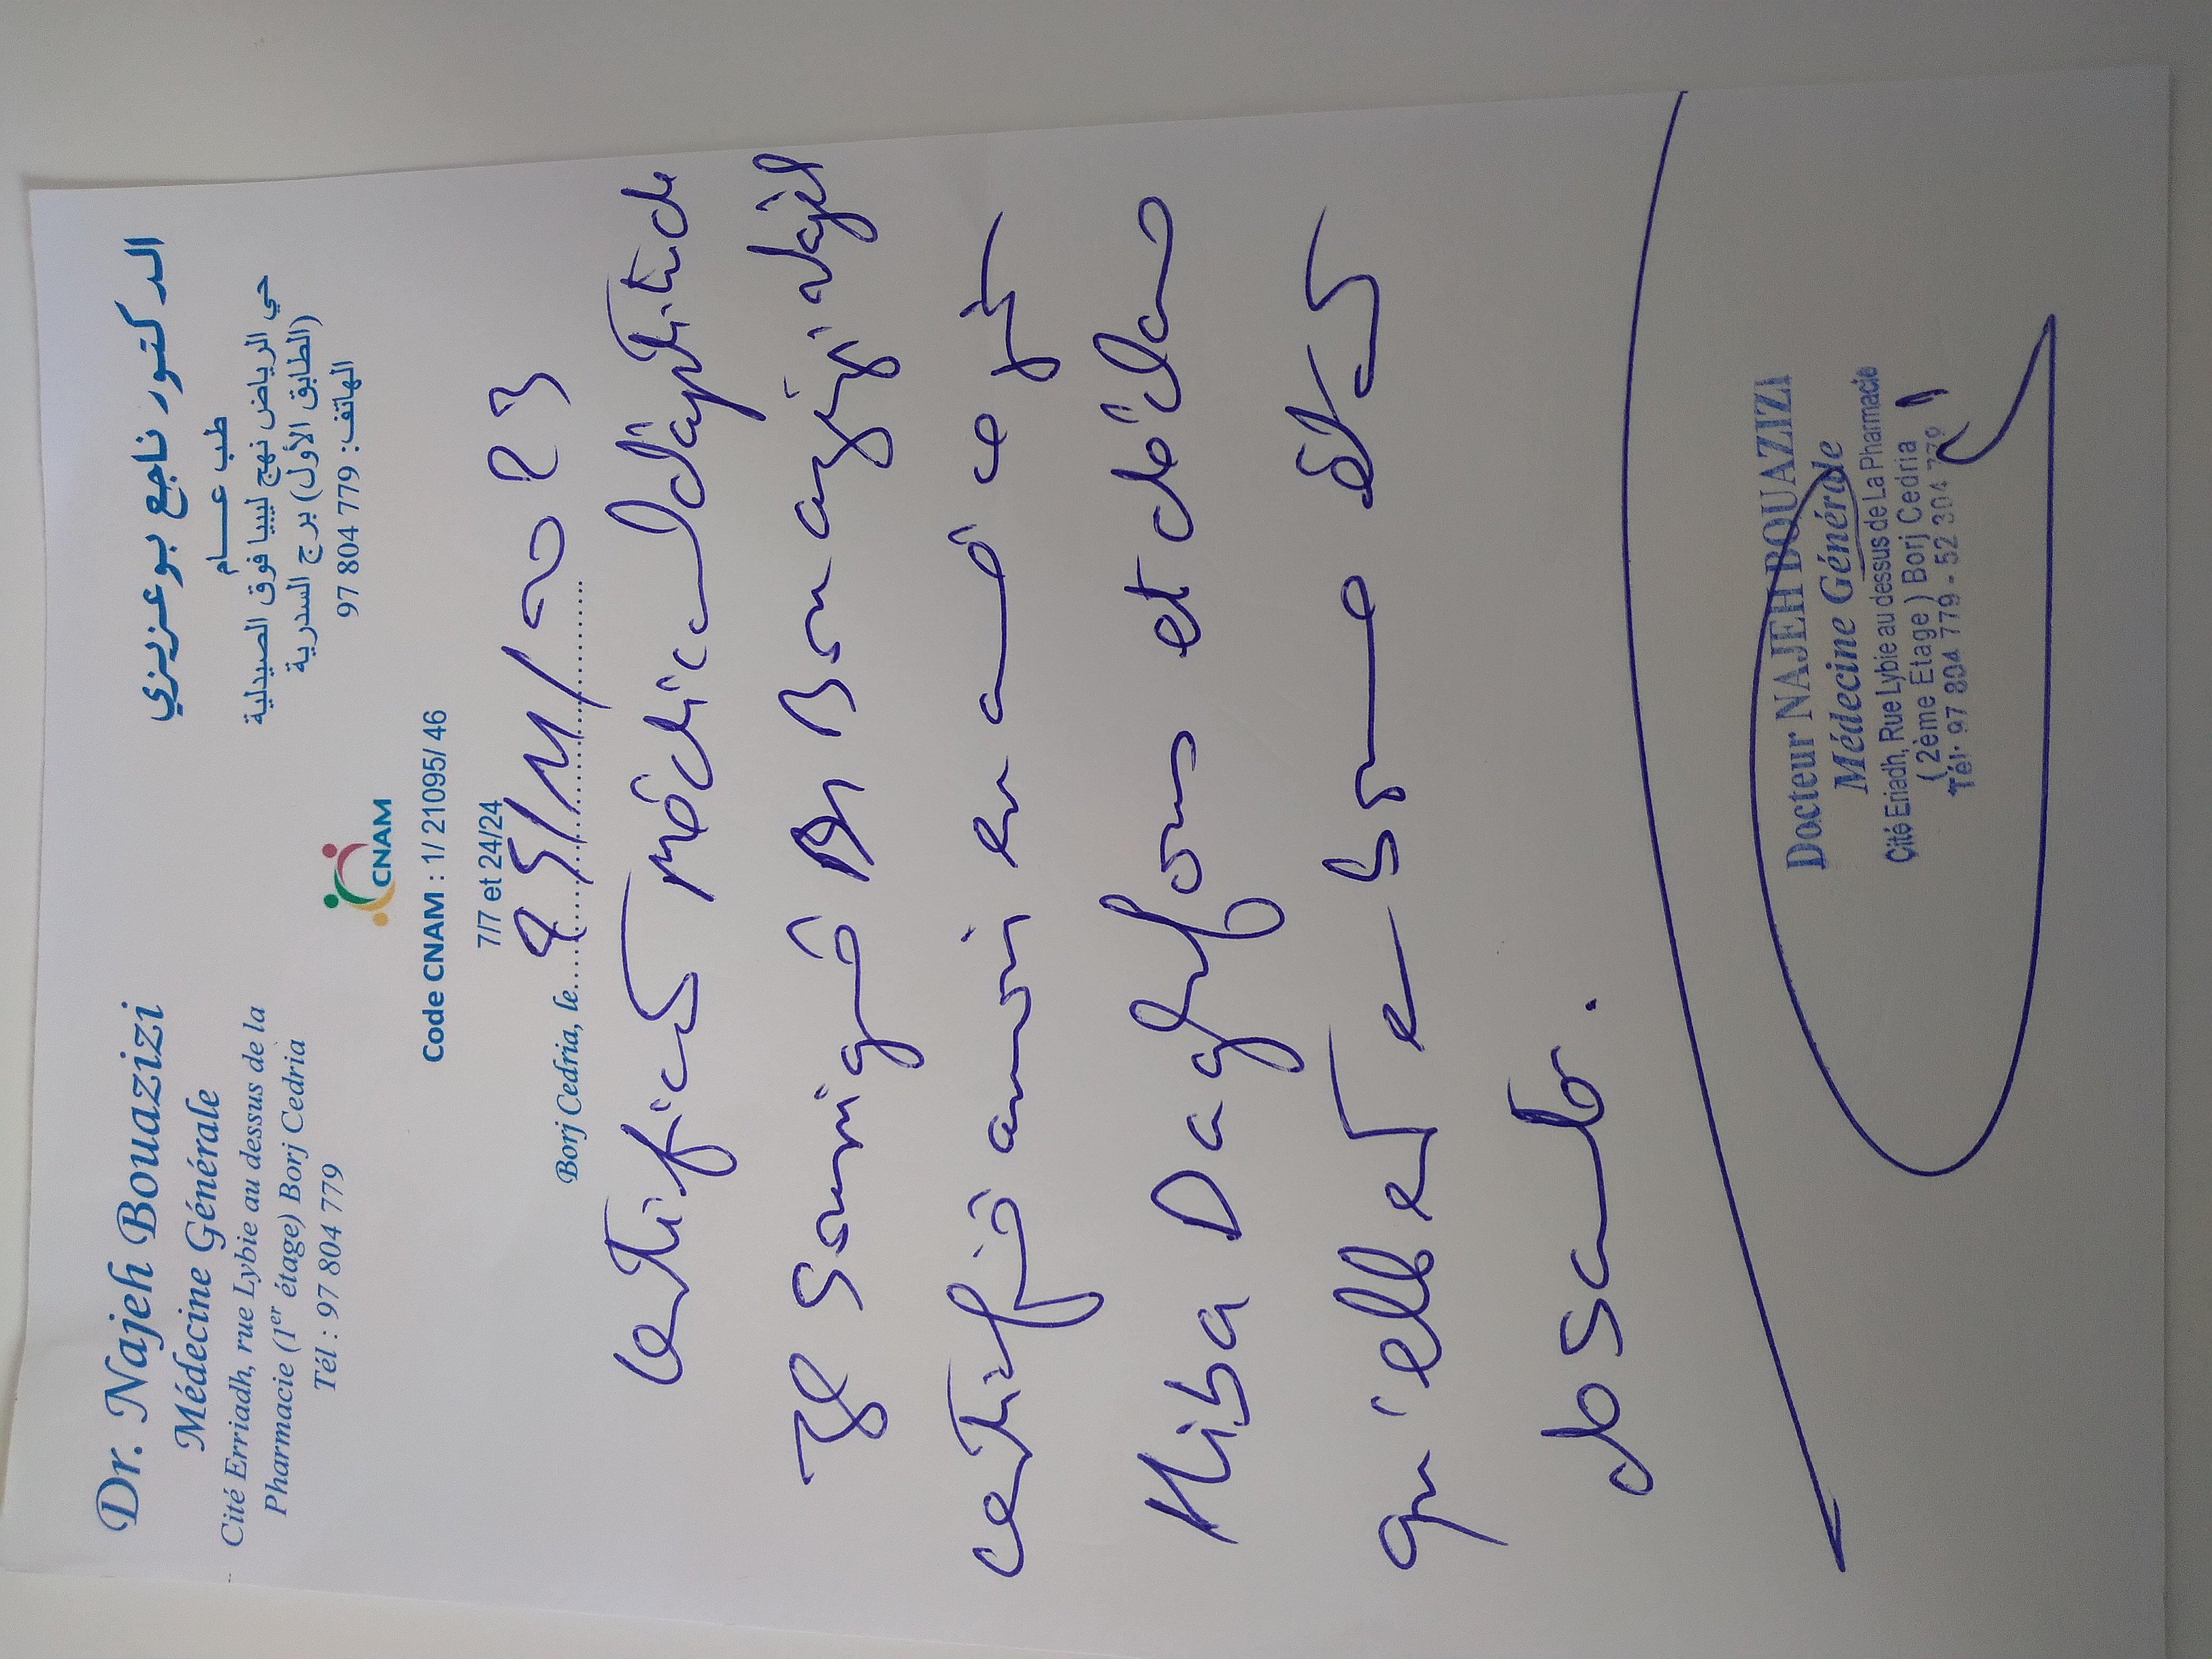 Dr. Najeh Bouazizi
Médecine Générale
Cité Erriadh, rue Lybie au dessus de la
Pharmacie (1er étage) Borj Cedria
Tél : 97 804 779
الدكتور ناجح بوعزيزي
طب عــــام
حي الرياض نهج ليبيا فوق الصيدلية
(الطابق الأول) برج السدرية
الهاتف: 779 804 97
CNAM
Code CNAM : 1/ 21095/ 46
7/7 et 24/24
Borj Cedria, le
Certificat Médical d'aptitude
Je Soussigné Dr Bouazizi Najeh
certifie avoir examiné ce jour
Hiba Daghfous et déclare
qu'elle est en bonne état
de Santé.
Docteur NAJEH BOUAZIZI
Médecine Générale
Cité Eriadh, Rue Lybie au dessus de La Pharmacie
( 2ème Etage ) Borj Cedria
Tél: 97 804 779 - 52 304 779